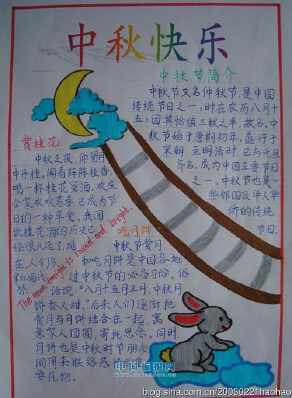 中秋快乐
中秋节简介
中秋节又名仲秋节,是中国
传统节日之一,时在农历八月十
五;因其恰值三秋之半,故名,中
秋节始于唐朝初年,盛行于
宋朝,至明清时,已与元旦
齐名,成为中国主要节日
之一,中秋节也是
华
的传统
节日。
赏桂花
中秋之夜,仰望月
中丹桂,闻着阵阵桂香,
喝一杯桂花蜜酒,欢庆
合家欢欢已成为节
日的一种享受,我国
桂花
The moon tonight is round and bright.
吃月饼
中秋节赏月
和吃月饼是中国各地
过中秋节的必备习俗,俗
话说:"八月十五月正圆,中秋月
饼香又甜,"后来人们逐渐把
赏月与月饼结合在一起,寓
意家人团圆,寄托思念,同时
月饼也是中秋节朋友
间用来联络感
要礼物。
中国看报网
blog.sina.com.cn/20030221haohao